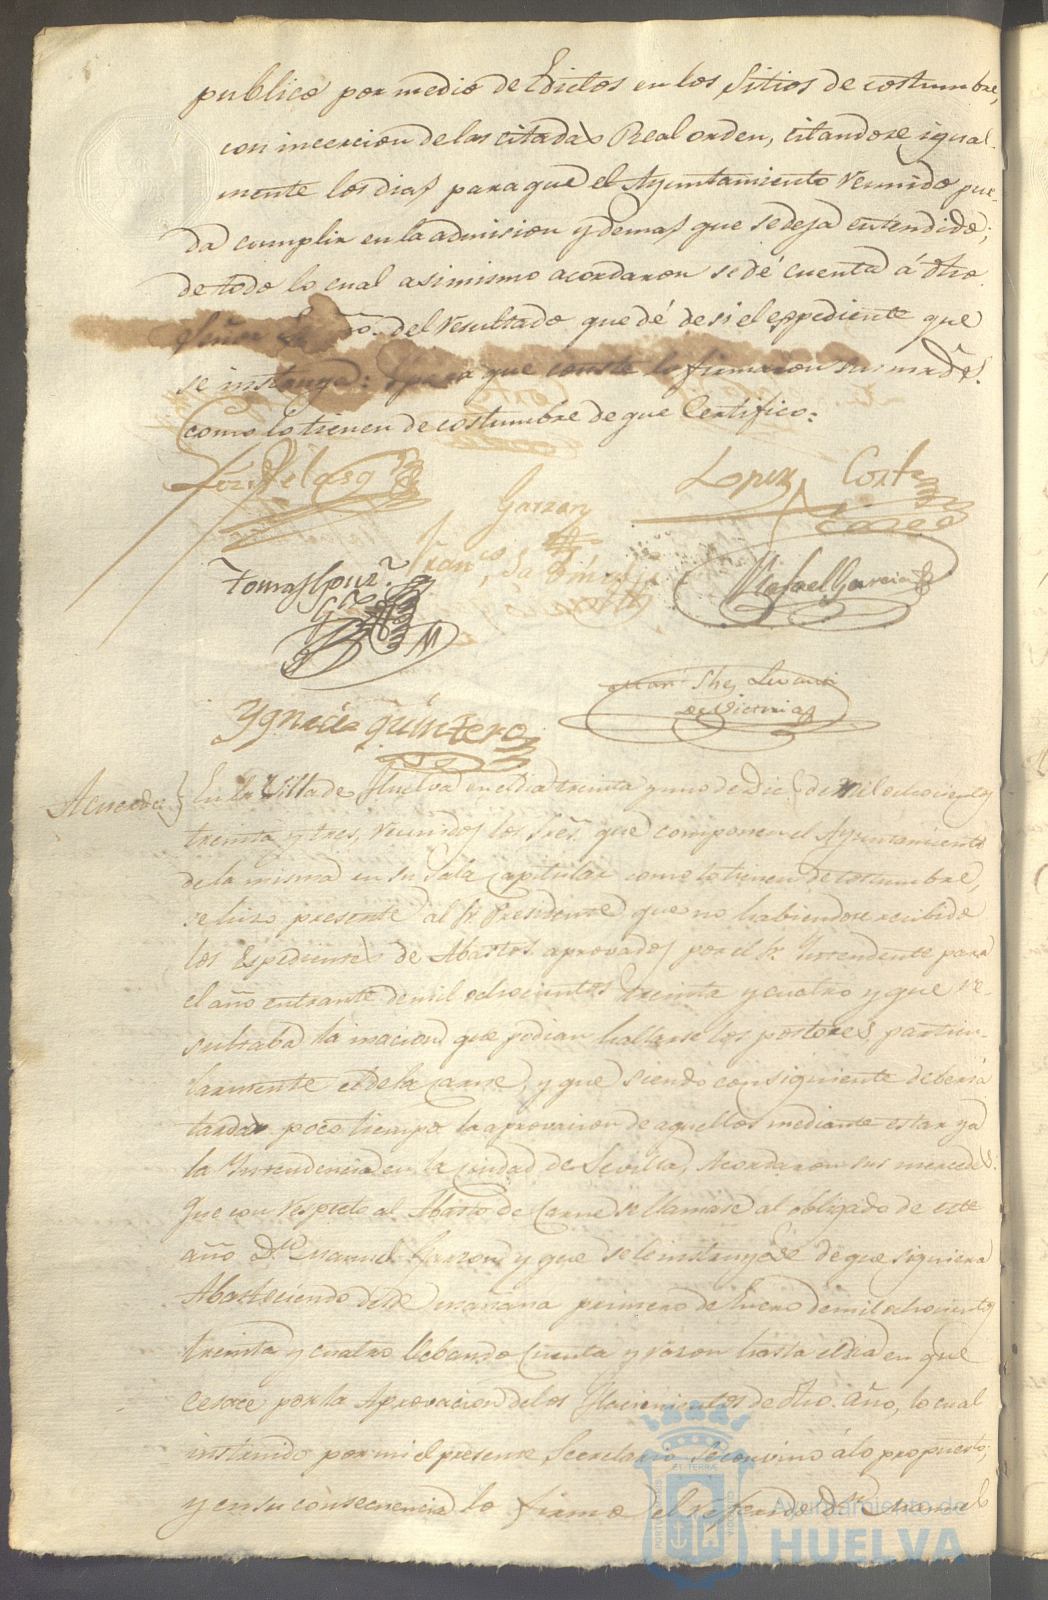 publico por medio de Edictos en los Sitios de costumbre,
con incercion de la citada Real orden, citandose igual-
mente los dias para que el Ayuntamiento reunido pue-
da cumplir en la admision y demas que se deja entendido;
de todo lo cual asimismo acordaron se dé cuenta á dho.
Señor del resultado que dé de si el espediente que
se instruya: Y para que conste lo firmaron sus mrds.
como lo tienen de costumbre de que Certifico:
Lopez Corte
Garzon
Tomas
Rafael Garcia
de Victoria
Ygnacio Quintero
Acuerdo } En la Villa de Huelva en el dia treinta y uno de Dic.e de mil ochocientos
treinta y tres, reunidos los Sres. que componen el Ayuntamiento
de la misma en su Sala Capitular como lo tienen de costumbre,
se hizo presente al Sr. Presidente que no habiendose recibido
los Espedientes de Abastos aprovados por el Sr. Yntendente para
el año entrante de mil ochocientos treinta y cuatro y que re-
sultaba la inaccion que podian hallarse los postores, particu-
larmente el de la carne, y que siendo consiguiente deberia
tardar poco tiempo la aprovacion de aquellos mediante estar ya
la Yntendencia en la Ciudad de Sevilla, Acordaron sus mercedes:
Que con respecto al Abasto de Carne se llamase al obligado de este
año D.n Manuel Garzon y que se le instruyese de que siguiera
Abasteciendo desde mañana primero de Enero de mil ochocientos
treinta y cuatro llebando cuenta y razon hasta el dia en que
cesace por la Aprovacion de los Hacimientos de dho. año, lo cual
instruido por mi el presente Secretario se convino á lo propuesto;
y en su consecuencia lo firmo el referido D.n Manuel
Ayuntamiento de
HUELVA